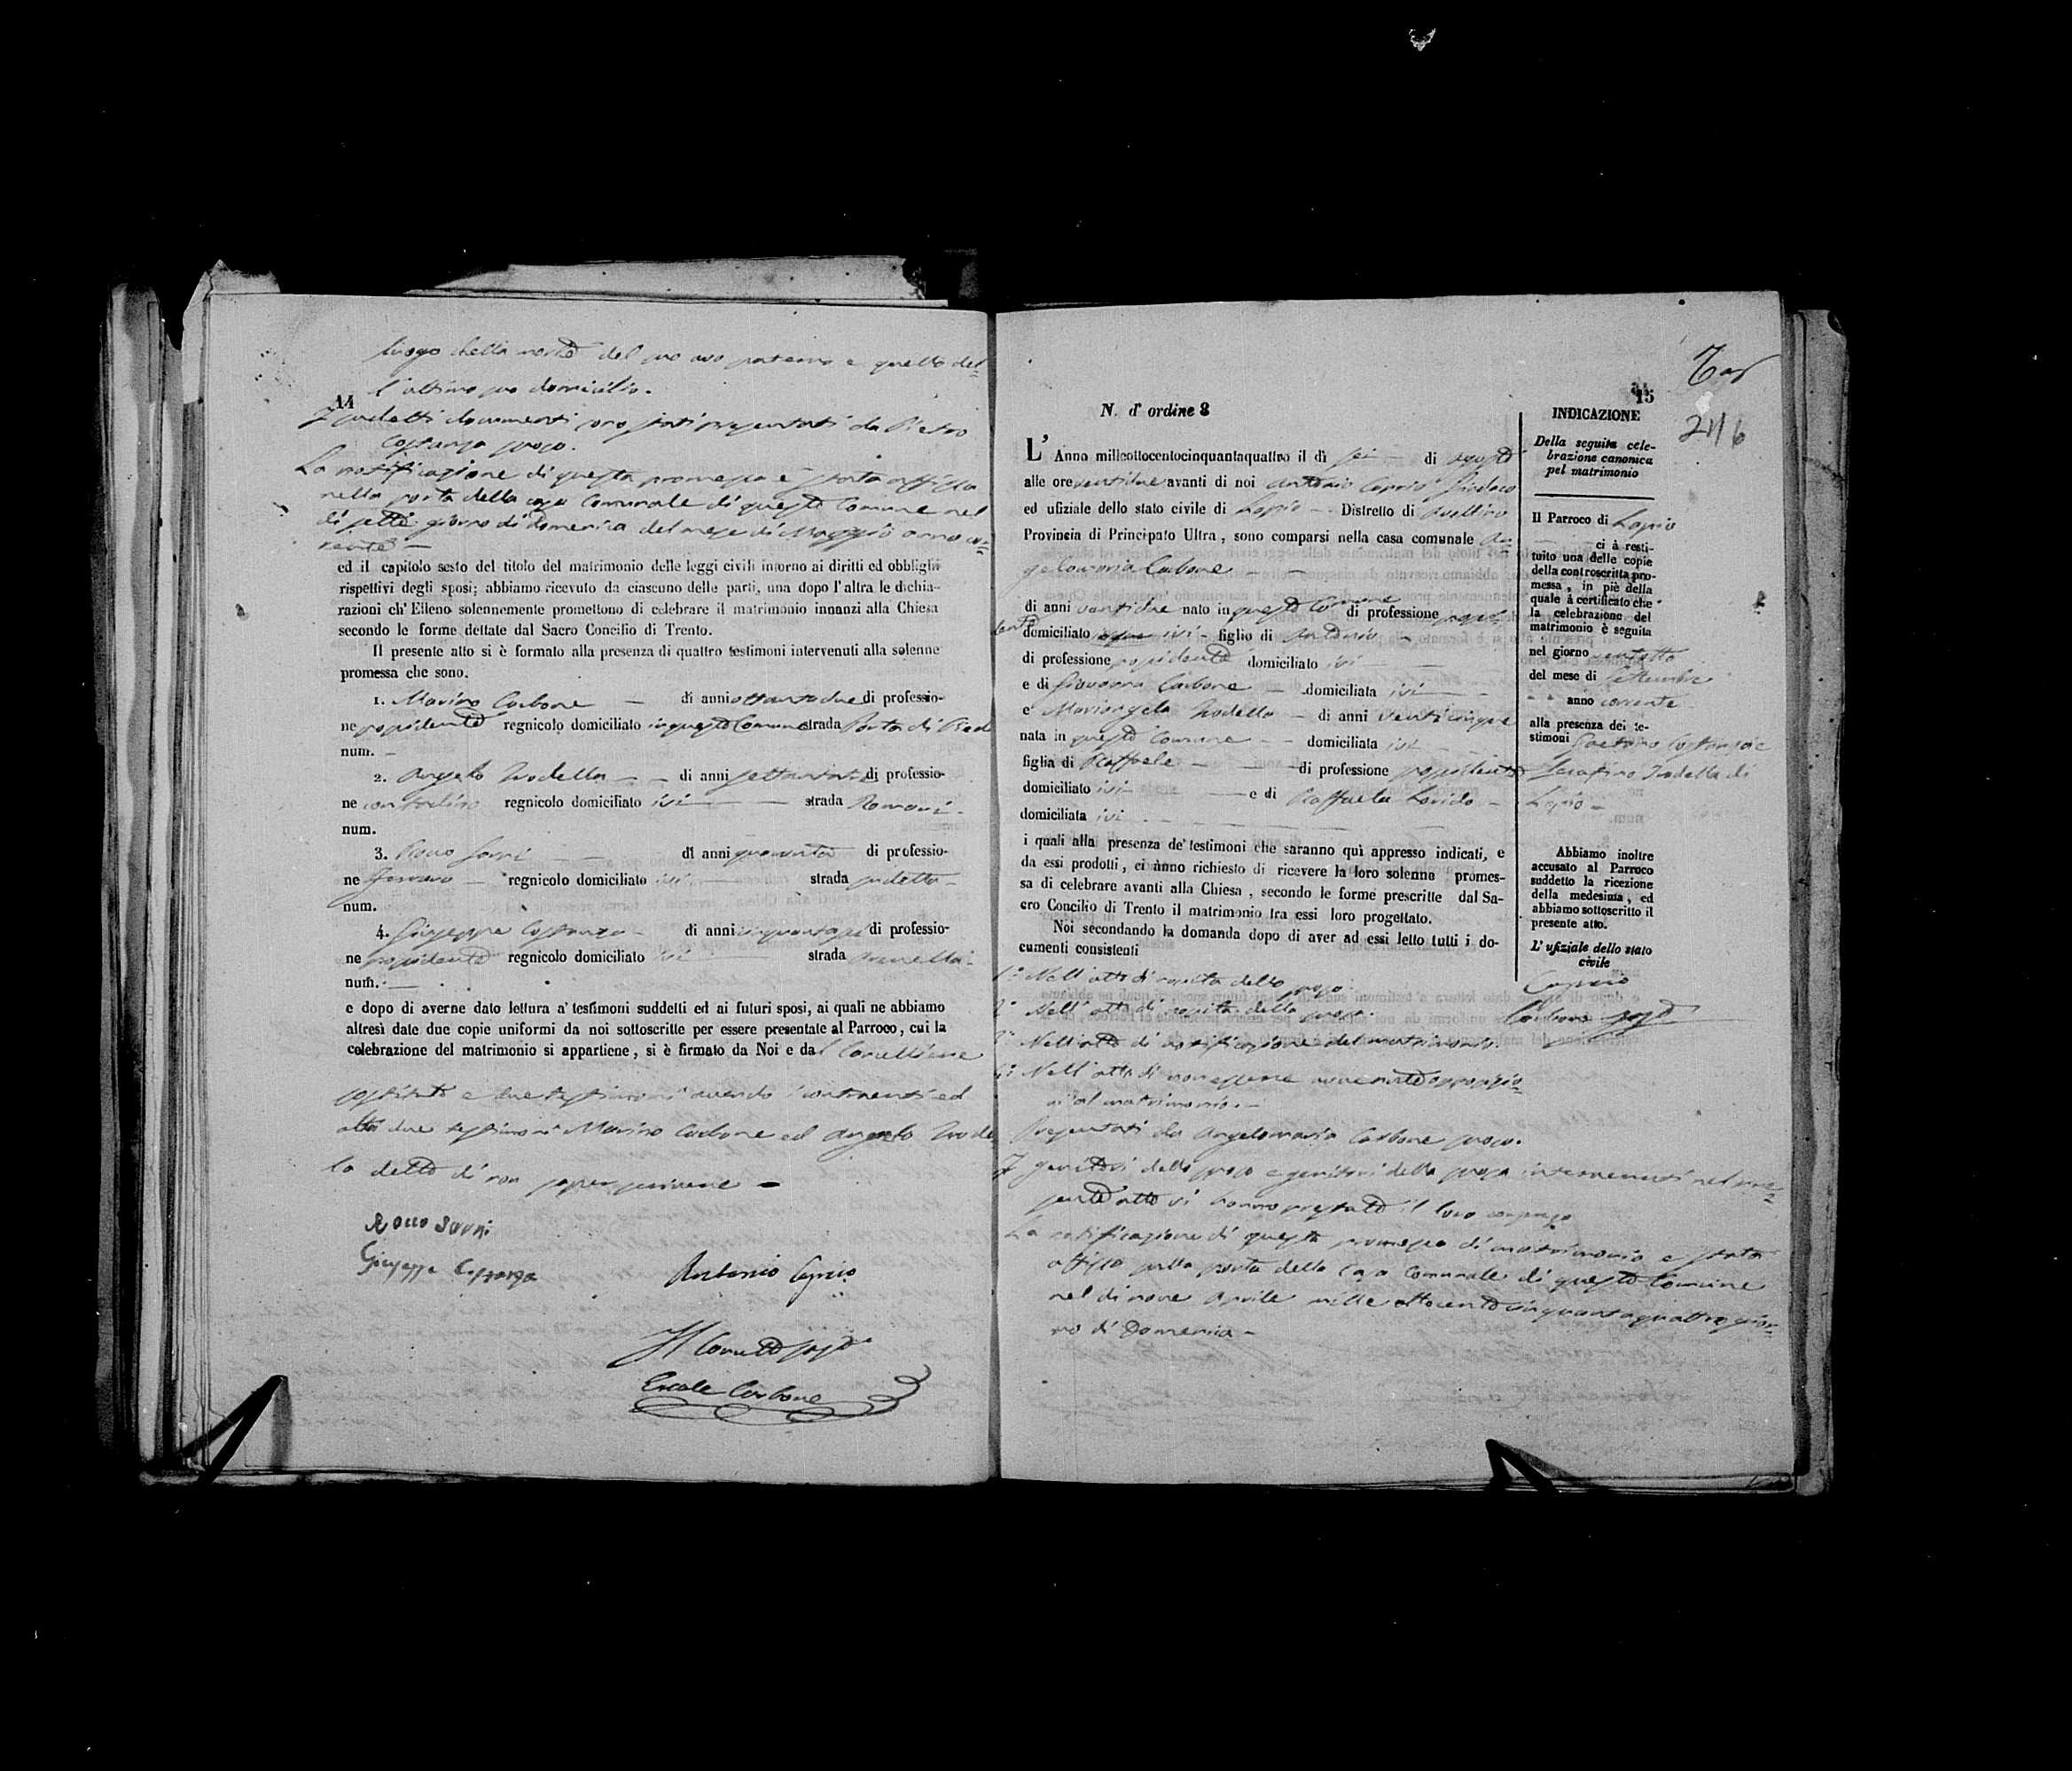 luogo della morte del suo avo paterno e quello del=
l'ultimo suo domicilio.
14
I sudetti documenti sono stati presentati da Pietro
Costanza sposo.
La notificazione di questa promessa è stata affissa
nella porta della casa Comunale di questo Comune nel
dì sette giorno di domenica del mese di Maggio anno cor=
rente —
ed il capitolo sesto del titolo del matrimonio delle leggi civili intorno ai diritti ed obblighi
rispettivi degli sposi; abbiamo ricevuto da ciascuno delle parti, una dopo l'altra le dichia-
razioni ch' Elleno solennemente promettono di celebrare il matrimonio innanzi alla Chiesa
secondo le forme dettate dal Sacro Concilio di Trento.
Il presente atto si è formato alla presenza di quattro testimoni intervenuti alla solenne
promessa che sono.
1. Marino Carbone — di anni ottantadue di professio-
ne propidente regnicolo domiciliato in questo Comune strada Porta di
num. —
2. Angelo Trodella — di anni di professio-
ne contadino regnicolo domiciliato ivi — strada Romani
num.
3. Rocco — di anni quaranta di professio-
ne Ferraro — regnicolo domiciliato ivi — strada sudetta
num.
4. Giuseppe Costanza di anni cinquantasei di professio-
ne propidente regnicolo domiciliato ivi strada
num. —
e dopo di averne dato lettura a' testimoni suddetti ed ai futuri sposi, ai quali ne abbiamo
altresì date due copie uniformi da noi sottoscritte per essere presentate al Parroco, cui la
celebrazione del matrimonio si appartiene, si è firmato da Noi e dal Cancelliere
sostituto e due testimoni avendo i contraenti ed
altri due testimoni Marino Carbone ed Angelo Trodel
la detto di non saper scrivere —
Rocco
Giuseppe Costanza
Antonio Caprio
Il Canc.e sost.o
Ercole Carbone
15
246
N. d' ordine 8
L' Anno millottocentocinquantaquattro il dì sei — di agosto
alle ore ventidue avanti di noi Antonio Caprio Sindaco
ed ufiziale dello stato civile di Lapio — Distretto di Avellino
Provincia di Principato Ultra, sono comparsi nella casa comunale An=
gelomaria Carbone — —
di anni ventidue nato in questo Comune di professione propi
dente domiciliato ivi — figlio di Antonio —
di professione propidente domiciliato ivi —
e di Giovanna Carbone — domiciliata ivi —
e Mariangela Trodella — di anni venticinque
nata in questo Comune — domiciliata ivi —
figlia di Raffaele — di professione propidente
domiciliato ivi — e di Raffaela —
domiciliata ivi
i quali alla presenza de' testimoni che saranno quì appresso indicati, e
da essi prodotti, ci ànno richiesto di ricevere la loro solenne promes-
sa di celebrare avanti alla Chiesa, secondo le forme prescritte dal Sa-
cro Concilio di Trento il matrimonio tra essi loro progettato.
Noi secondando la domanda dopo di aver ad essi letto tutti i do-
cumenti consistenti
1° Nell' atto di nascita dello sposo.
2° Nell' atto di nascita della sposa.
3° Nell' atto di notificazione del matrimonio.
4° Nell' atto di non essere avvenute opposizio=
ni al matrimonio. —
Presentati da Angelomaria Carbone sposo.
I genitori dello sposo e genitori della sposa intervenuti nel pre=
sente atto vi hanno prestato il loro consenso
La notificazione di questa promessa di matrimonio è stata
affissa sulla porta della casa Comunale di questo Comune
nel dì nove Aprile mille ottocento cinquantaquattro gior=
no di Domenica —
INDICAZIONE
Della seguita cele-
brazione canonica
pel matrimonio
Il Parroco di Lapio
ci à resti-
tuito una delle copie
della controscritta pro-
messa, in piè della
quale à certificato che
la celebrazione del
matrimonio è seguita
nel giorno ventotto
del mese di Settembre
anno corrente
alla presenza dei te-
stimoni Gaetano Costanza e
Serafino Trodella di
Lapio —
Abbiamo inoltre
accusato al Parroco
suddetto la ricezione
della medesima, ed
abbiamo sottoscritto il
presente atto.
L' ufiziale dello stato
civile
Caprio
Carbone sost.o